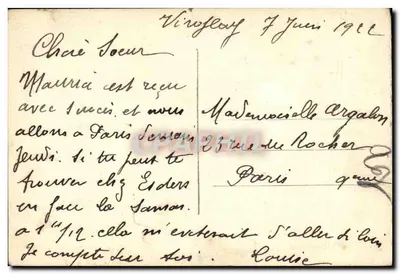 Viroflay 7 Juin 1922
Chère Soeur
Maurice est reçu
avec succès, et nous
allons a Paris
jeudi. Si tu peut te
trouver chez Esders
en face la Samar.
a 1h 1/2. cella m'eviterait d'aller si loin
Je compte sur toi. Louise
Mademoiselle Argalon
23 rue du Rocher
Paris